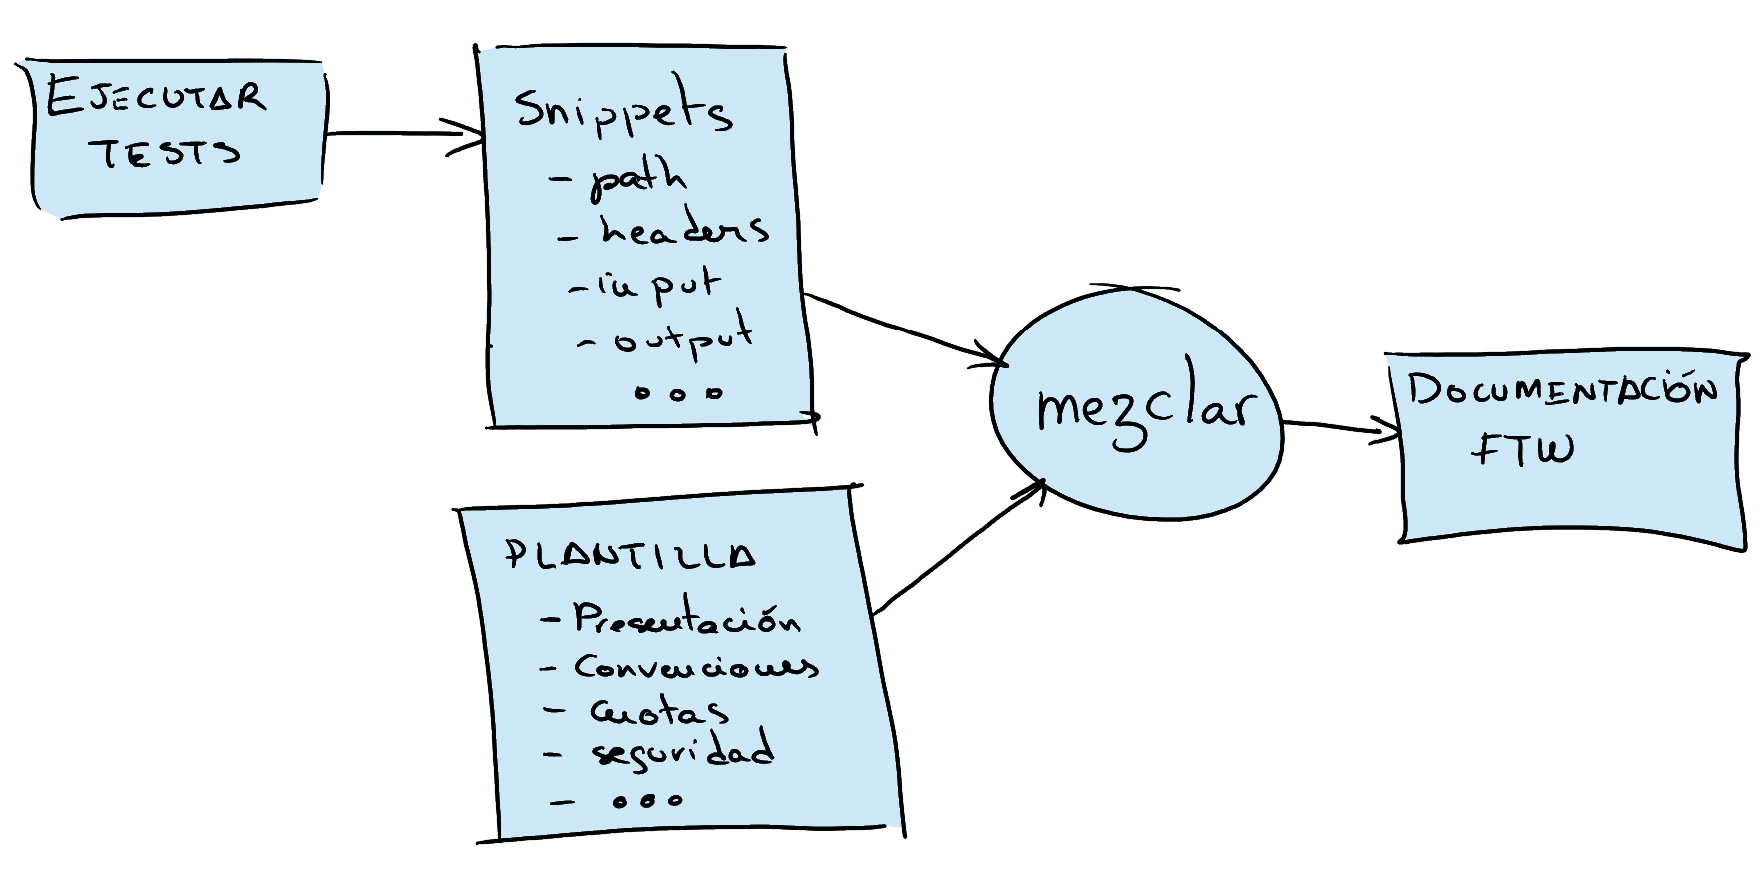 EJECUTAR
TESTS
Snippets
- path
- headers
- input
- output
PLANTILLA
- Presentación
- Convenciones
- Cuotas
- seguridad
- ...
mezclar
DOCUMENTACIÓN
FTW